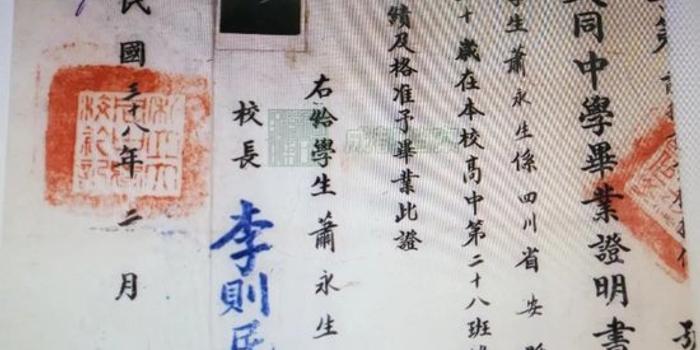 第
同中學畢業證明書
學生蕭永生係四川省安縣
十歲在本校高中第二十八班
績及格准予畢業此證
右給學生蕭永生
校長 李則民
民國三十八年二月